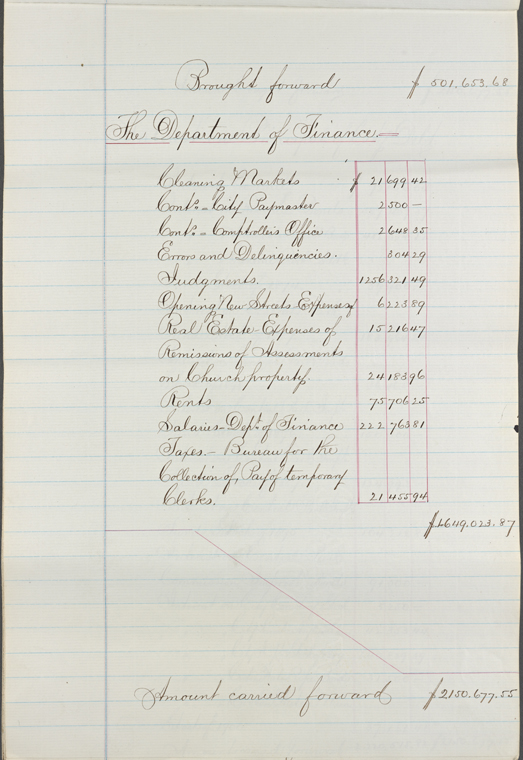 Brought forward $ 501.653.68
The Department of Finance.=
Cleaning Markets $ 21 699 42
Conts. = City Paymaster 2 500 —
Conts. = Comptroller's Office 2 648 35
Errors and Delinquencies. 304 29
Judgments. 1256 321 49
Opening New Streets-Expenses of 6 223 89
Real Estate-Expenses of 15 216 47
Remissions of Assessments
on Church property. 24 183 96
Rents 75 706 25
Salaries-Dept. of Finance 222 763 81
Taxes.- Bureau for the
Collection of, Pay of temporary
Clerks. 21 455 94
$1649.023.87
Amount carried forward $2150.677.55